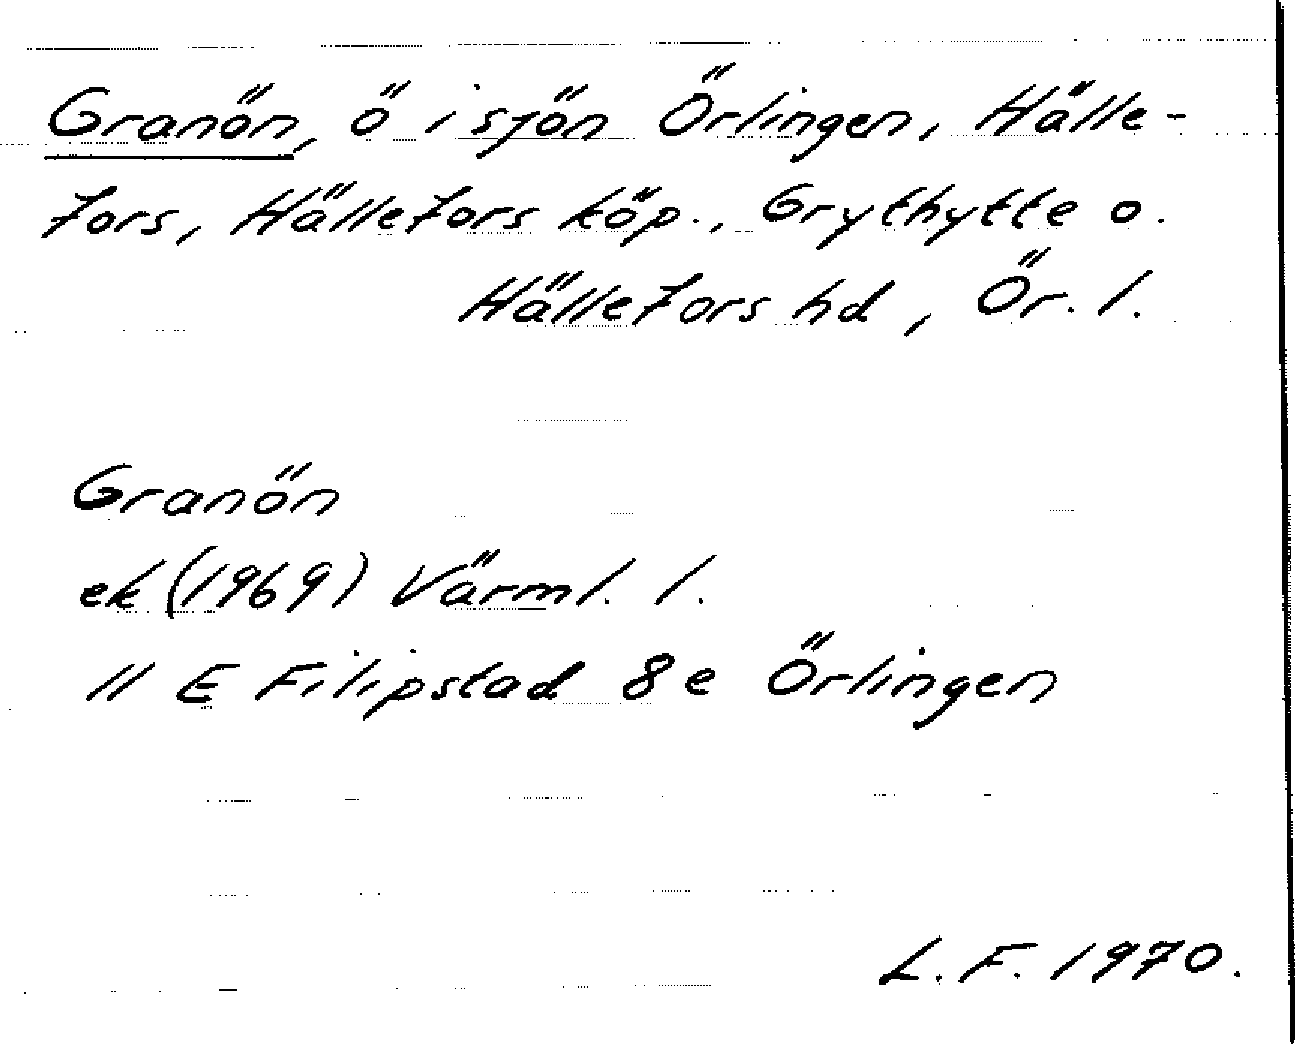 Granön, ö i sjön Örlingen, Hälle-
fors, Hällefors köp., Grythytte o.
Hällefors hd, Ör. l.
Granön
ek (1969) Värml. l.
11 E Filipstad 8e Örlingen
L.F. 1970.